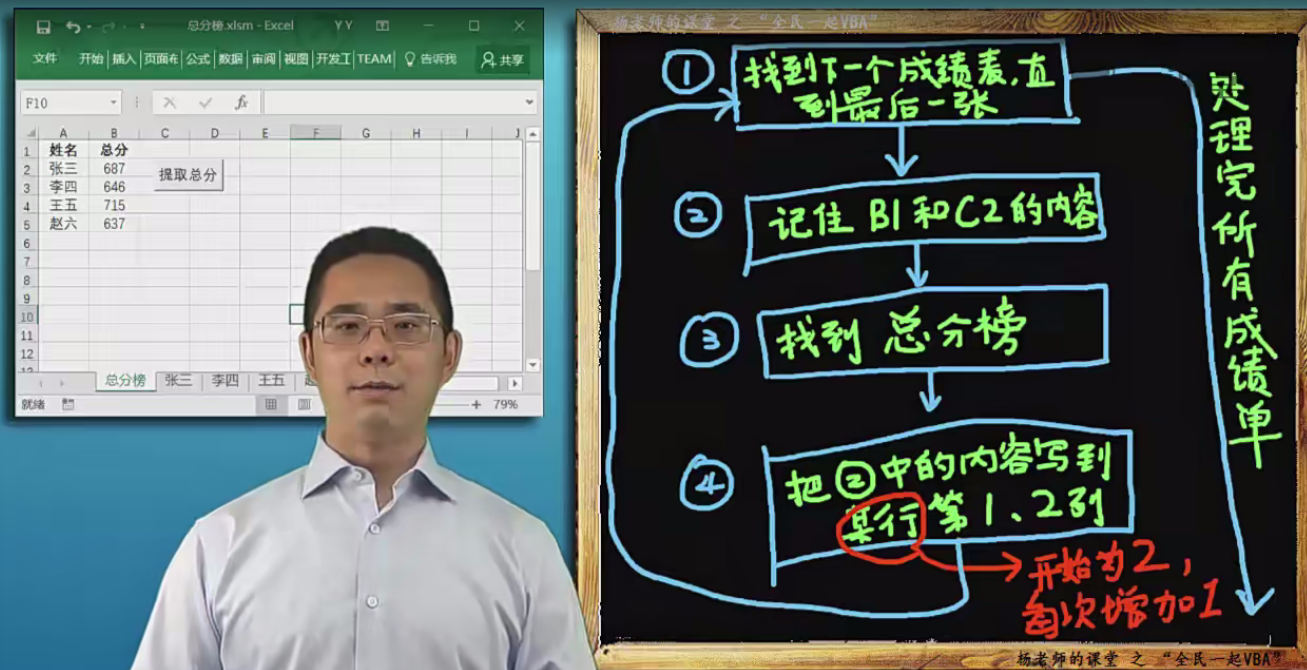 总分榜.xlsm - Excel
Y Y
文件 开始 插入 页面布 公式 数据 审阅 视图 开发工 TEAM 告诉我 共享
F10
fx
A B C D E F G H I J
1 姓名 总分
2 张三 687
提取总分
3 李四 646
4 王五 715
5 赵六 637
6
7
8
9
10
11
12
总分榜 张三 李四 王五
就绪
79%
杨老师的课堂 之 “全民一起VBA”
① 找到下一个成绩表,直
到最后一张
② 记住 B1 和 C2 的内容
③ 找到 总分榜
④ 把②中的内容写到
某行 第1、2列
开始为2,
每次增加1
处理完所有成绩单
杨老师的课堂 之 “全民一起VBA”